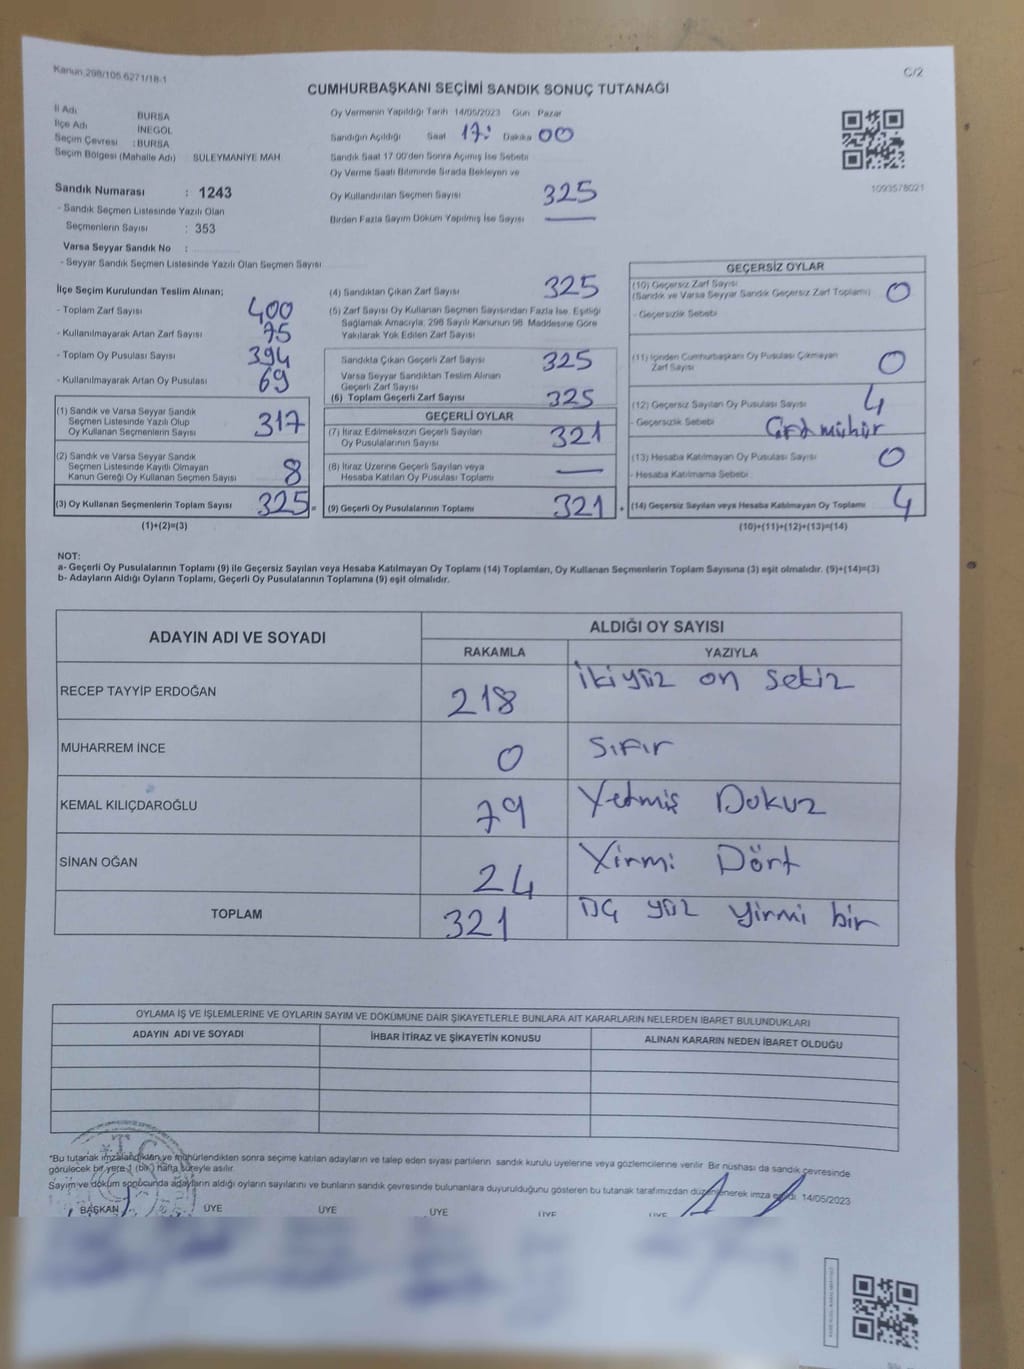 Kanun.298/105.6271/18-1
C/2
CUMHURBAŞKANI SEÇİMİ SANDIK SONUÇ TUTANAĞI
İl Adı BURSA
İlçe Adı İNEGÖL
Seçim Çevresi : BURSA
Seçim Bölgesi (Mahalle Adı) SÜLEYMANİYE MAH
Sandık Numarası : 1243
- Sandık Seçmen Listesinde Yazılı Olan
Seçmenlerin Sayısı : 353
Varsa Seyyar Sandık No :
- Seyyar Sandık Seçmen Listesinde Yazılı Olan Seçmen Sayısı
Oy Vermenin Yapıldığı Tarih 14/05/2023 Gün Pazar
Sandığın Açıldığı Saat 17: Dakika 00
Sandık Saat 17.00'den Sonra Açılmış İse Sebebi
Oy Verme Saati Bitiminde Sırada Bekleyen ve
Oy Kullandırılan Seçmen Sayısı 325
Birden Fazla Sayım Döküm Yapılmış İse Sayısı —
1093578021
İlçe Seçim Kurulundan Teslim Alınan;
- Toplam Zarf Sayısı 400
- Kullanılmayarak Artan Zarf Sayısı 75
- Toplam Oy Pusulası Sayısı 394
- Kullanılmayarak Artan Oy Pusulası 69
(1) Sandık ve Varsa Seyyar Sandık
Seçmen Listesinde Yazılı Olup
Oy Kullanan Seçmenlerin Sayısı 317
(2) Sandık ve Varsa Seyyar Sandık
Seçmen Listesinde Kayıtlı Olmayan
Kanun Gereği Oy Kullanan Seçmen Sayısı 8
(3) Oy Kullanan Seçmenlerin Toplam Sayısı 325 =
(1)+(2)=(3)
(4) Sandıktan Çıkan Zarf Sayısı 325
(5) Zarf Sayısı Oy Kullanan Seçmen Sayısından Fazla İse, Eşitliği
Sağlamak Amacıyla; 298 Sayılı Kanunun 98. Maddesine Göre
Yakılarak Yok Edilen Zarf Sayısı
Sandıkta Çıkan Geçerli Zarf Sayısı 325
Varsa Seyyar Sandıktan Teslim Alınan
Geçerli Zarf Sayısı
(6) Toplam Geçerli Zarf Sayısı 325
GEÇERLİ OYLAR
(7) İtiraz Edilmeksizin Geçerli Sayılan
Oy Pusulalarının Sayısı 321
(8) İtiraz Üzerine Geçerli Sayılan veya
Hesaba Katılan Oy Pusulası Toplamı —
(9) Geçerli Oy Pusulalarının Toplamı 321 +
GEÇERSİZ OYLAR
(10) Geçersiz Zarf Sayısı
(Sandık ve Varsa Seyyar Sandık Geçersiz Zarf Toplamı) 0
- Geçersizlik Sebebi
(11) İçinden Cumhurbaşkanı Oy Pusulası Çıkmayan
Zarf Sayısı 0
(12) Geçersiz Sayılan Oy Pusulası Sayısı 4
- Geçersizlik Sebebi Çift mühür
(13) Hesaba Katılmayan Oy Pusulası Sayısı 0
- Hesaba Katılmama Sebebi
(14) Geçersiz Sayılan veya Hesaba Katılmayan Oy Toplamı 4
(10)+(11)+(12)+(13)=(14)
NOT:
a- Geçerli Oy Pusulalarının Toplamı (9) ile Geçersiz Sayılan veya Hesaba Katılmayan Oy Toplamı (14) Toplamları, Oy Kullanan Seçmenlerin Toplam Sayısına (3) eşit olmalıdır. (9)+(14)=(3)
b- Adayların Aldığı Oyların Toplamı, Geçerli Oy Pusulalarının Toplamına (9) eşit olmalıdır.
ADAYIN ADI VE SOYADI ALDIĞI OY SAYISI
RAKAMLA YAZIYLA
RECEP TAYYİP ERDOĞAN 218 ikiyüz on sekiz
MUHARREM İNCE 0 Sıfır
KEMAL KILIÇDAROĞLU 79 Yetmiş Dokuz
SİNAN OĞAN 24 Yirmi Dört
TOPLAM 321 üç yüz yirmi bir
OYLAMA İŞ VE İŞLEMLERİNE VE OYLARIN SAYIM VE DÖKÜMÜNE DAİR ŞİKAYETLERLE BUNLARA AİT KARARLARIN NELERDEN İBARET BULUNDUKLARI
ADAYIN ADI VE SOYADI İHBAR İTİRAZ VE ŞİKAYETİN KONUSU ALINAN KARARIN NEDEN İBARET OLDUĞU
*Bu tutanak imzalandıktan ve mühürlendikten sonra seçime katılan adayların ve talep eden siyasi partilerin sandık kurulu üyelerine veya gözlemcilerine verilir. Bir nüshası da sandık çevresinde
görülecek bir yere 1 (bir) hafta süreyle asılır.
Sayım ve döküm sonucunda adayların aldığı oyların sayılarını ve bunların sandık çevresinde bulunanlara duyurulduğunu gösteren bu tutanak tarafımızdan düzenlenerek imza edildi. 14/05/2023
BAŞKAN ÜYE ÜYE ÜYE ÜYE ÜYE